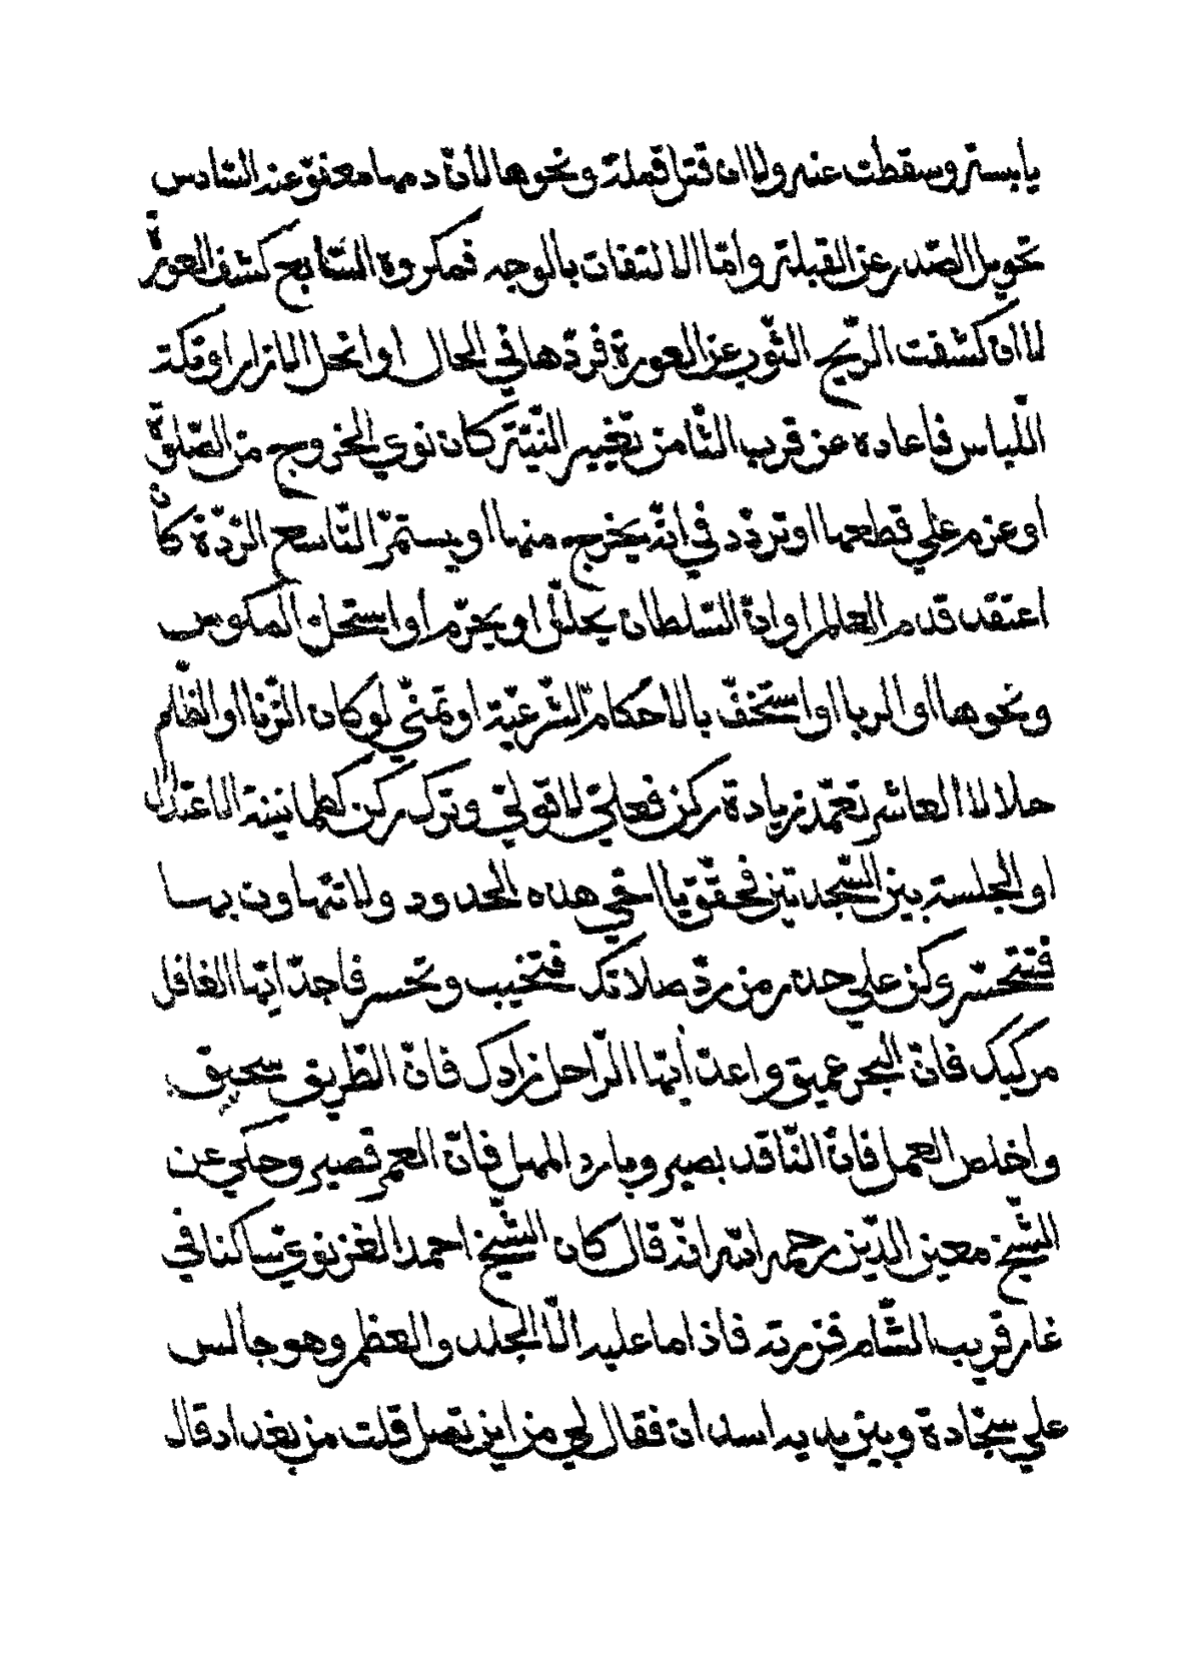 يابسة وسقطت عنه ولا ان قتل قملة ونحوها لأنّ دمها معفوّ عنه السّادس
تحويل الصّدر عن القبلة وامّا الالتفات بالوجه فمكروه السّابع كشف العورة
لا ان كشفت الرّيح الثّوب عن العورة فردّها في الحال او انحل الازار او تكة
اللّباس فاعاده عن قريب الثّامن تغيير النّيّة كان نوي الخروج من الصّلوة
او عزم علي قطعها او تردّد في انّه يخرج منها او يستمرّ التّاسع الرّدّة كأن
اعتقد قدم العالم او انّ السّلطان يحلّل او يحرّم أو استحل المكوس
ونحوها او الربا او استخفّ بالاحكام الشّرعيّة او تمنّي لو كان الزّنا او الظّلم
حلالا العاشر تعمّد زيادة ركن فعليّ لا قوليّ وترك ركن كطمانينة الاعتدال
او الجلسة بين السّجدتين فحقّق يا اخي هذه الحدود ولا تتهاون بها
فتتحسّر وكن علي حذر من ردّ صلاتك فتخيب وتخسر فاجدّ ايّها الغافل
مركبك فانّ البحر عميق واعدّ أيّها الرّاحل زادك فانّ الطّريق سحيق
واخلص العمل فانّ النّاقد بصير وبادر المهل فانّ العمر قصير وحكي عن
الشّيخ معين الدّين رحمه الله انّه قال كان الشّيخ احمد الغزنويّ ساكنا في
غار قريب الشّام فزرته فاذا ما عليه الّا الجلد والعظم وهو جالس
علي سجّادة وبين يديه اسدان فقال لي من اين تصل قلت من بغداد قال